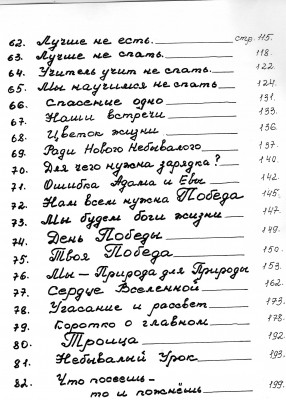 62. Лучше не есть. стр. 115.
63. Лучше не спать. 118.
64. Учитель учит не спать. 122.
65. Мы научимся не спать 124.
66. Спасение одно 131.
67. Наши встречи 133.
68. Цветок жизни 136.
69. Ради Нового Небывалого 137.
70. Для чего нужна зарядка? 140.
71. Ошибка Адама и Евы 142.
72. Нам всем нужна Победа 145.
73. Мы будем боги жизни 147.
74. День Победы 149.
75. Твоя Победа 150.
76. Мы – Природа для Природы 153.
77. Сердце Вселенной 162.
78. Угасание и рассвет 173.
79. Коротко о главном 178.
80. Троица 192.
81. Небывалый Урок 193.
82. Что посеешь –
то и пожнёшь 199.